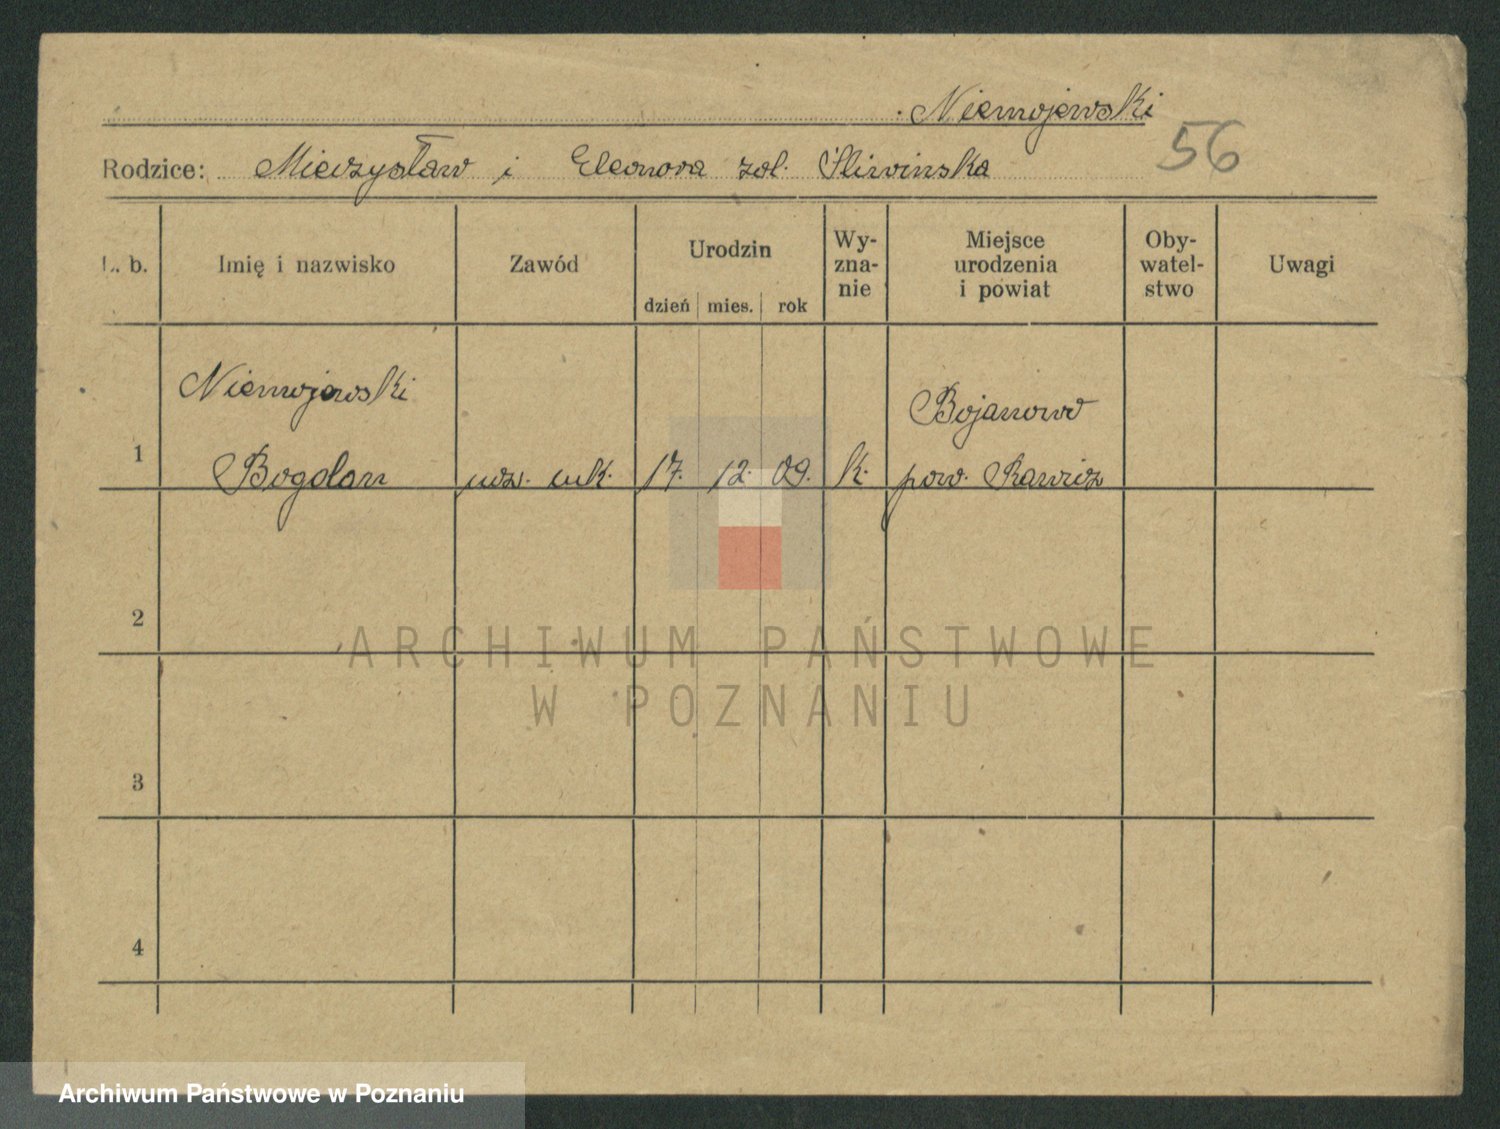 Niemojewski
56
Rodzice: Mieczysław i Eleonora zol. Śliwińska
L. b. Imię i nazwisko Zawód Urodzin dzień mies. rok Wy-zna-nie Miejsce urodzenia i powiat Oby-watel-stwo Uwagi
Niemojewski Bojanowo
1 Bogdan ucz. 17. 12. 09. k. pow. Rawicz
2
ARCHIWUM PAŃSTWOWE
W POZNANIU
3
4
Archiwum Państwowe w Poznaniu